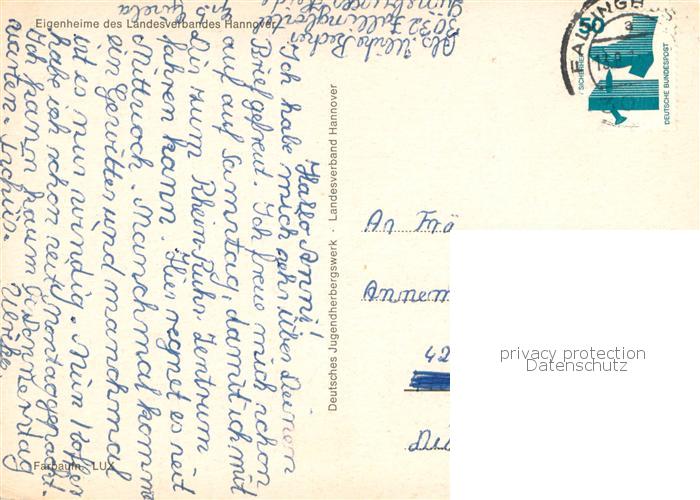 Eigenheime des Landesverbandes Hannover
Abs. Ulrike Becher
3032 Fallingbostel
Hallo Anni!
Ich habe mich sehr über Deinen
Brief gefreut. Ich freue mich schon
auf auf Samstag, damit ich mit
Dir zum Rhein-Ruhr-Zentrum
fahren kann. Hier regnet es seit
Mittwoch. Manchmal kommt
ein Gewitter und manchmal
ist es nur windig. Mein Koffer
habe ich schon seit Montag gepackt.
Ich kann kaum bis Donnerstag
warten. Tschüs.
Ulrike
Farbaufn. LUX
Deutsches Jugendherbergswerk · Landesverband Hannover
50
SICHERHEIT
DEUTSCHE BUNDESPOST
An Frä
Annem
42
privacy protection
Datenschutz